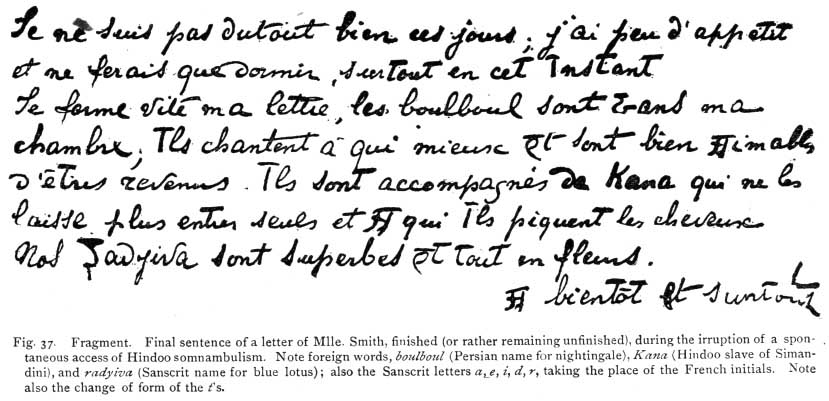 Je ne suis pas dutout bien ces jours ; j'ai peu d'appetit
et ne ferais que dormir, surtout en cet Instant
Je ferme vite ma lettre, les boulboul sont dans ma
chambre ; Ils chantent à qui mieux et sont bien aimables
d'êtres revenus. Ils sont accompagnés de Kana qui ne les
laisse plus entrer seuls et a qui Ils piquent les cheveux
Nos radyiva sont superbes et tout en fleurs.
a bientôt et surtout
Fig. 37. Fragment. Final sentence of a letter of Mlle. Smith, finished (or rather remaining unfinished), during the irruption of a spon-
taneous access of Hindoo somnambulism. Note foreign words, boulboul (Persian name for nightingale), Kana (Hindoo slave of Siman-
dini), and radyiva (Sanscrit name for blue lotus); also the Sanscrit letters a, e, i, d, r, taking the place of the French initials. Note
also the change of form of the t's.